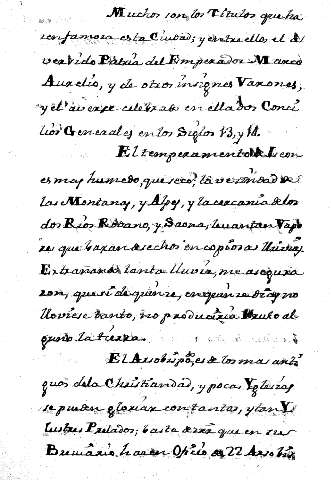 Muchos son los Titulos que ha
cen famosa esta Ciudad; y entre ellos el de
ver sido Patria del Emperador Marco
Aurelio, y de otros insignes Varones,
y el averse celebrado en ella dos Conci
lios Generales en los Siglos 13, y 14.
El temperamento de Leon
es mas humedo, que seco; la vecindad de
las Montañas, y Alpes, y la cercania de los
dos Rios Rodano, y Saona, levantan Vapo
res que baxan desechos en copiosas lluvias.
Estrañando tanta lluvia, me asegura
ron, que si de quinze, en quinze dias no
lloviese tanto, no produciria fruto al
guno la tierra.
El Arzobispado, es de los mas anti
guos de la Christiandad, y pocas Yglesias
se pueden gloriar con tantos, y tan Y
lustres Prelados; basta dezir que en su
Breviario, hazen Oficio de 22 Arzobis